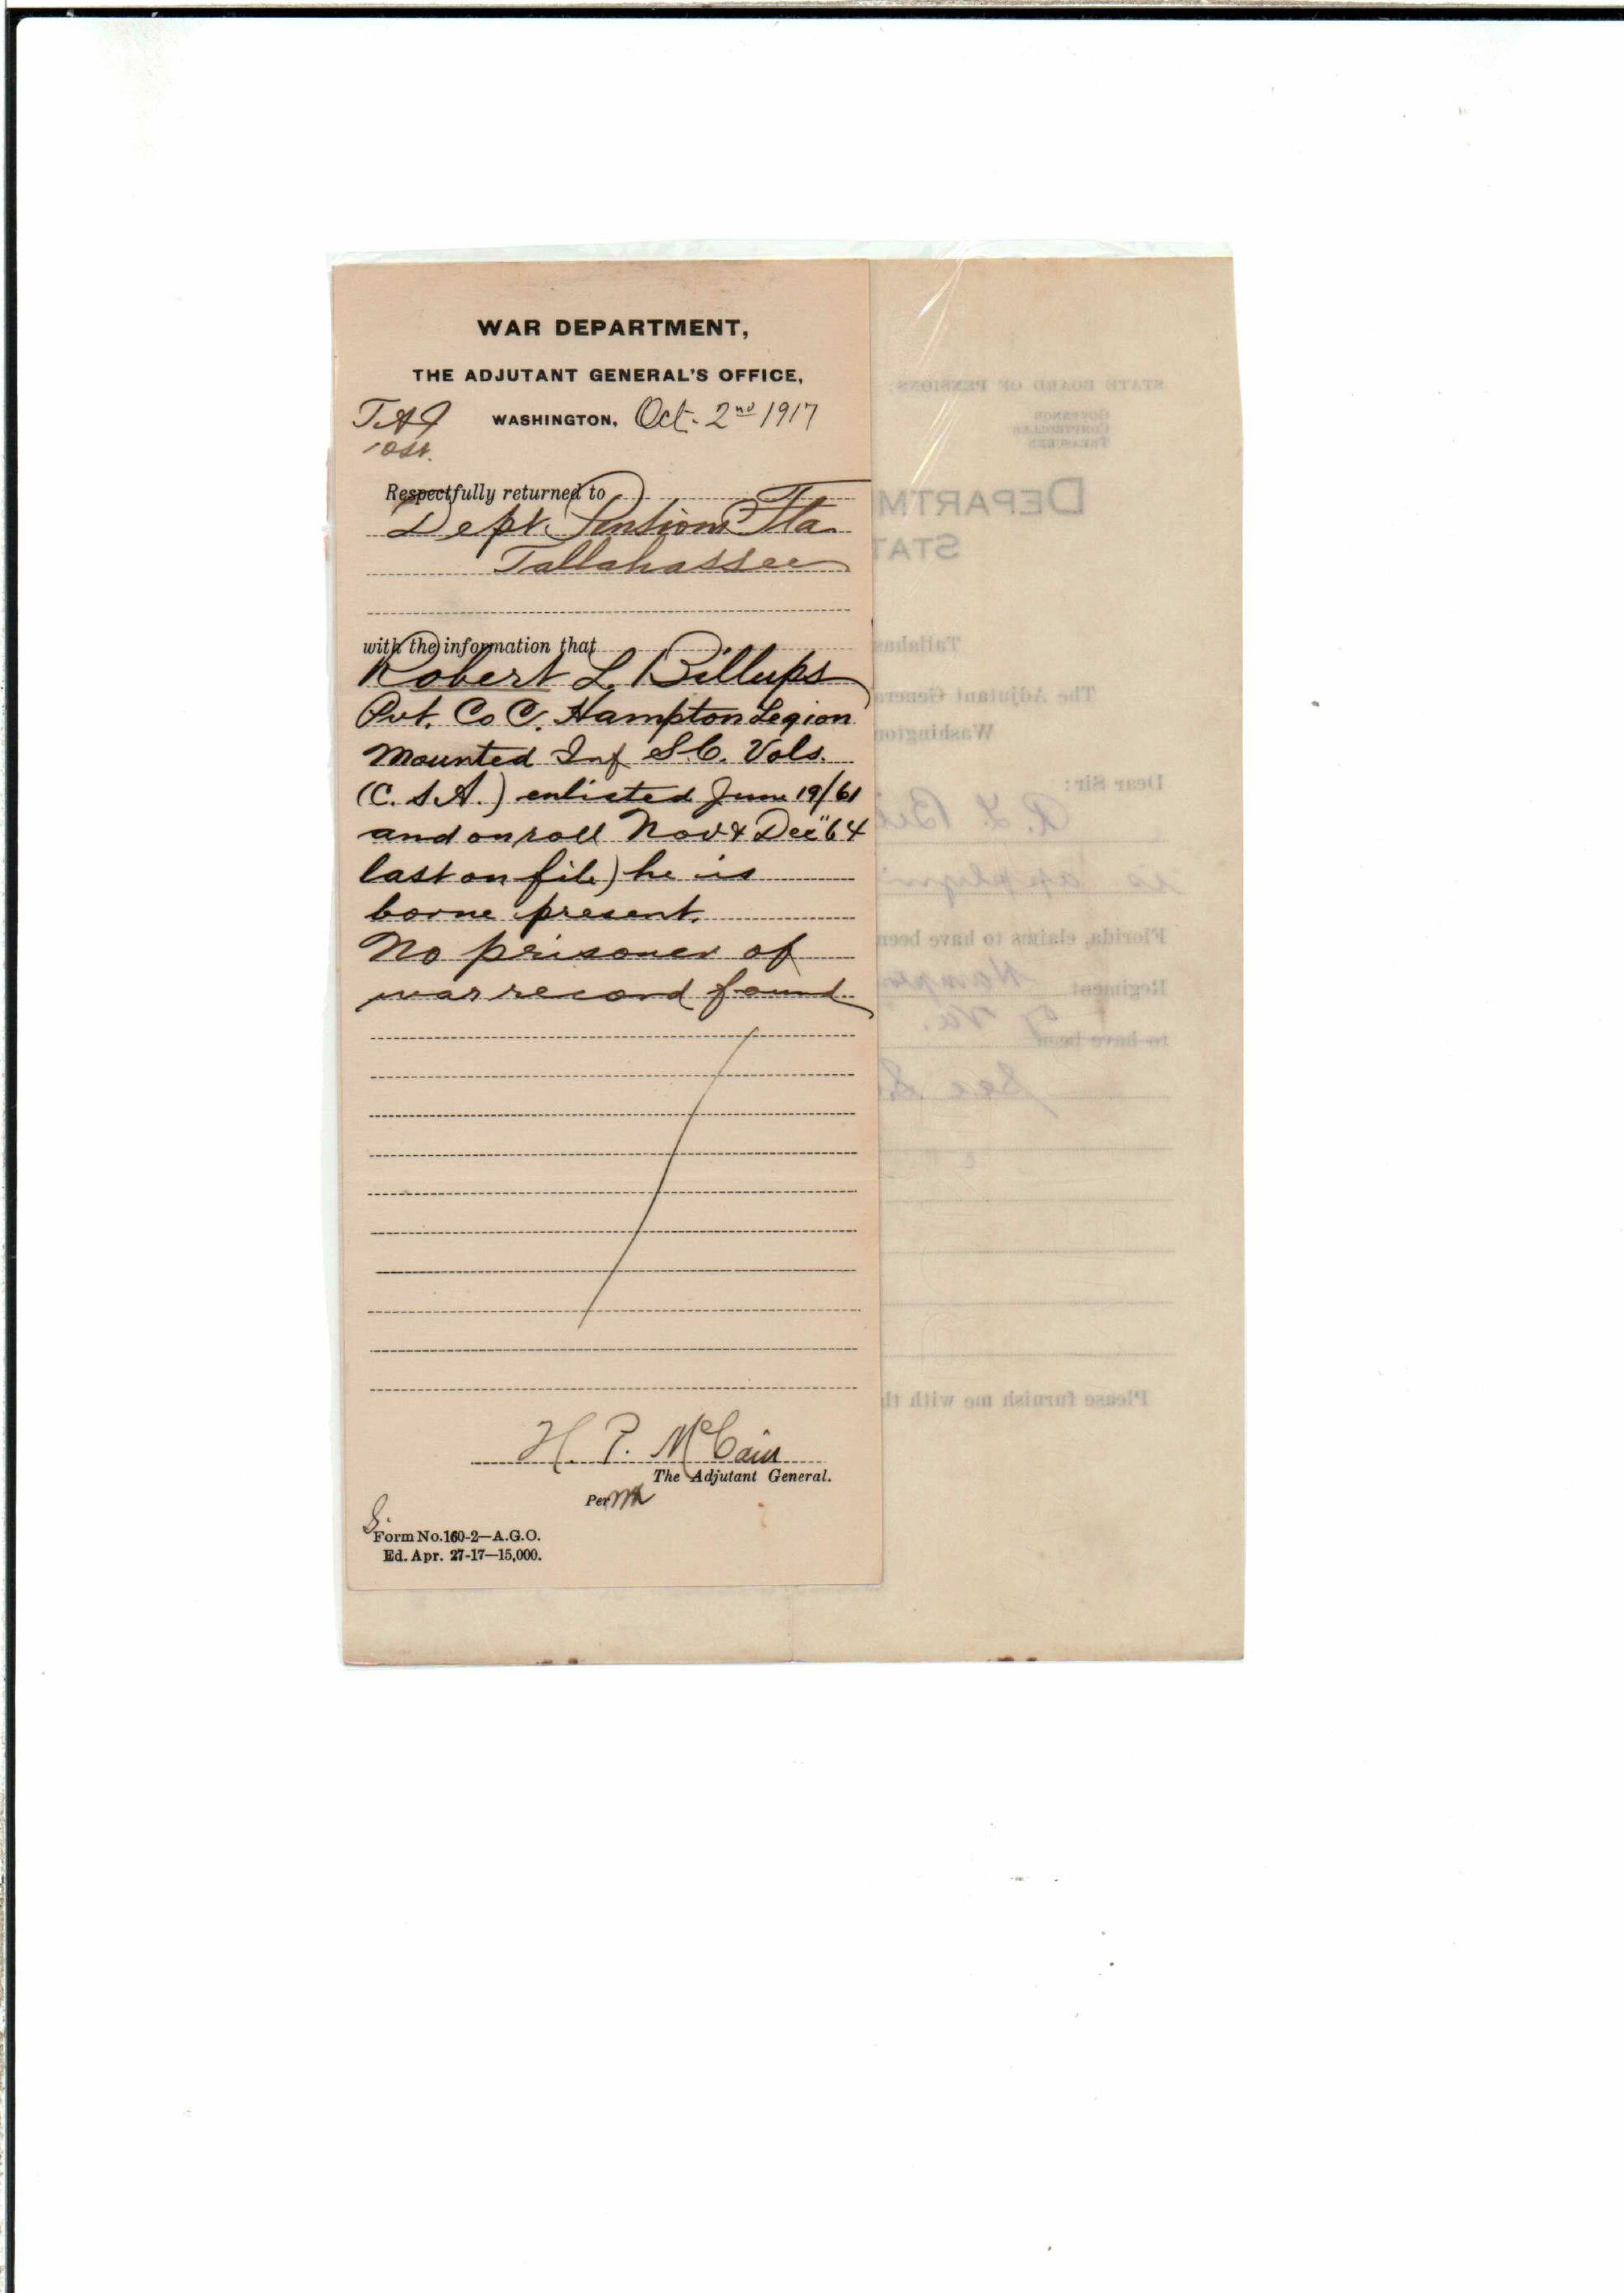 WAR DEPARTMENT,
THE ADJUTANT GENERAL'S OFFICE,
WASHINGTON, Oct. 2nd 1917
Respectfully returned to
Dept. Pensions Fla
Tallahassee
with the information that
Robert L. Billups
Pvt. Co C. Hampton Legion
Mounted Inf S.C. Vols.
(C. S. A.) enlisted June 19/61
and on roll Nov & Dec "64
last on file) he is
borne present.
No prisoner of
war record found
H. P. McCain
The Adjutant General.
Per
Form No. 160-2—A.G.O.
Ed. Apr. 27-17—15,000.
STATE BOARD OF PENSIONS:
GOVERNOR
COMPTROLLER
TREASURER
DEPARTM
STAT
Tallahas
The Adjutant Genera
Washington
Dear Sir:
R. L. Bil
is applyi
Florida, claims to have been
Regiment Hampt
to have been
Please furnish me with th